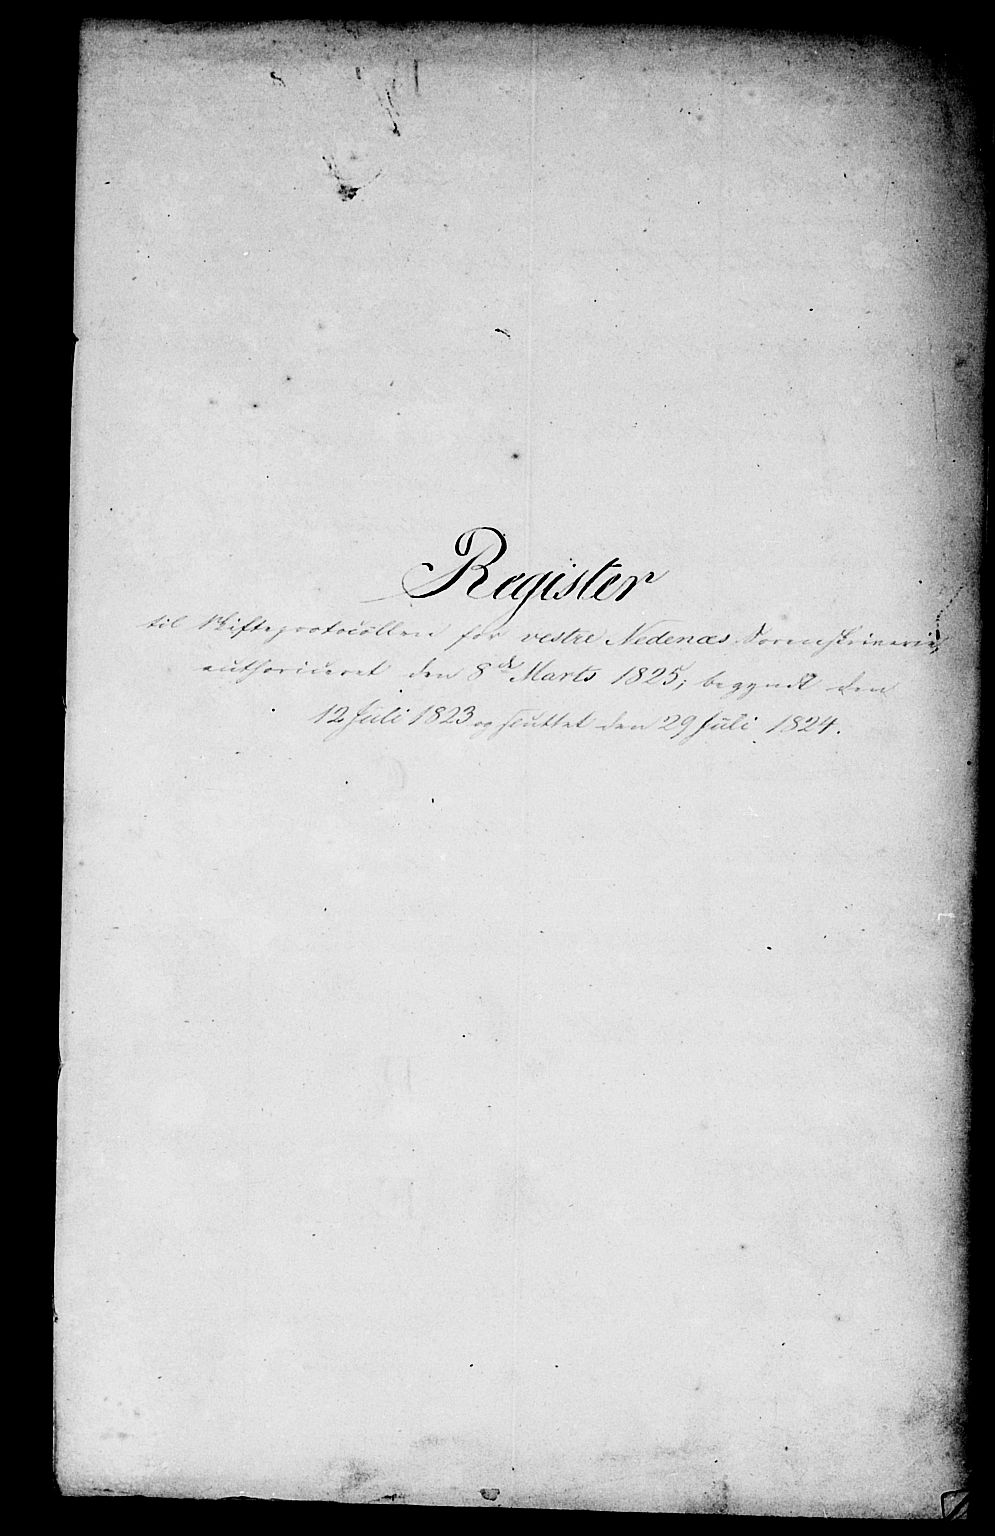 Register
til Skifteprotocollen for vestre Nedenæs Sorenskriverie,
authoriceret den 8de Marts 1825; begyndt den
12 Juli 1823 og sluttet den 29 Juli 1824.